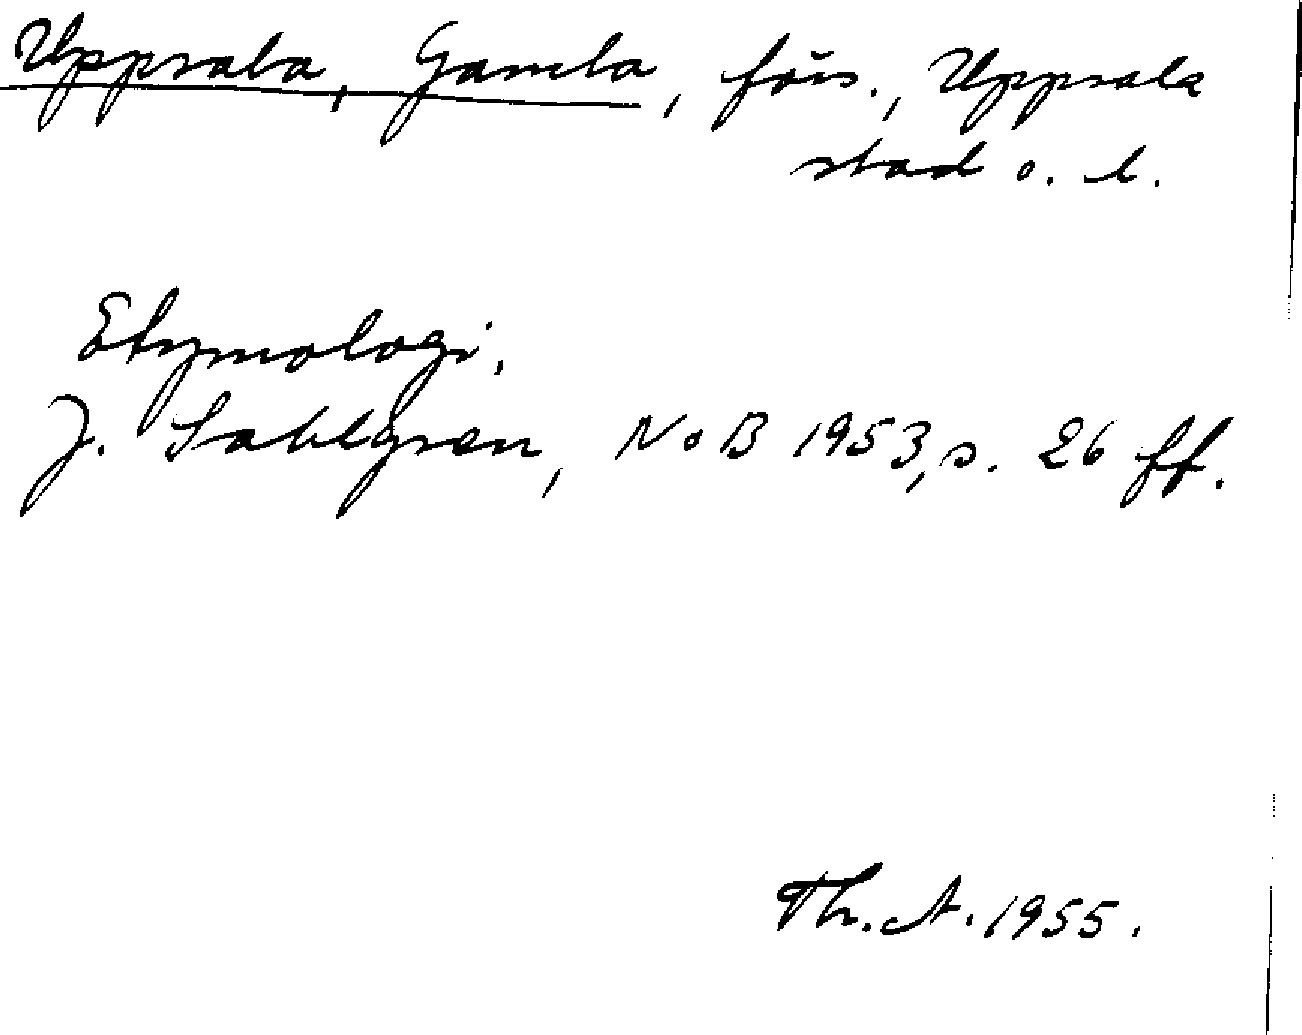 Uppsala, Gamla, förs., Uppsala
stad o. l.
Etymologi.
J. Sahlgren, NoB 1953, s. 26 ff.
Th. A. 1955.